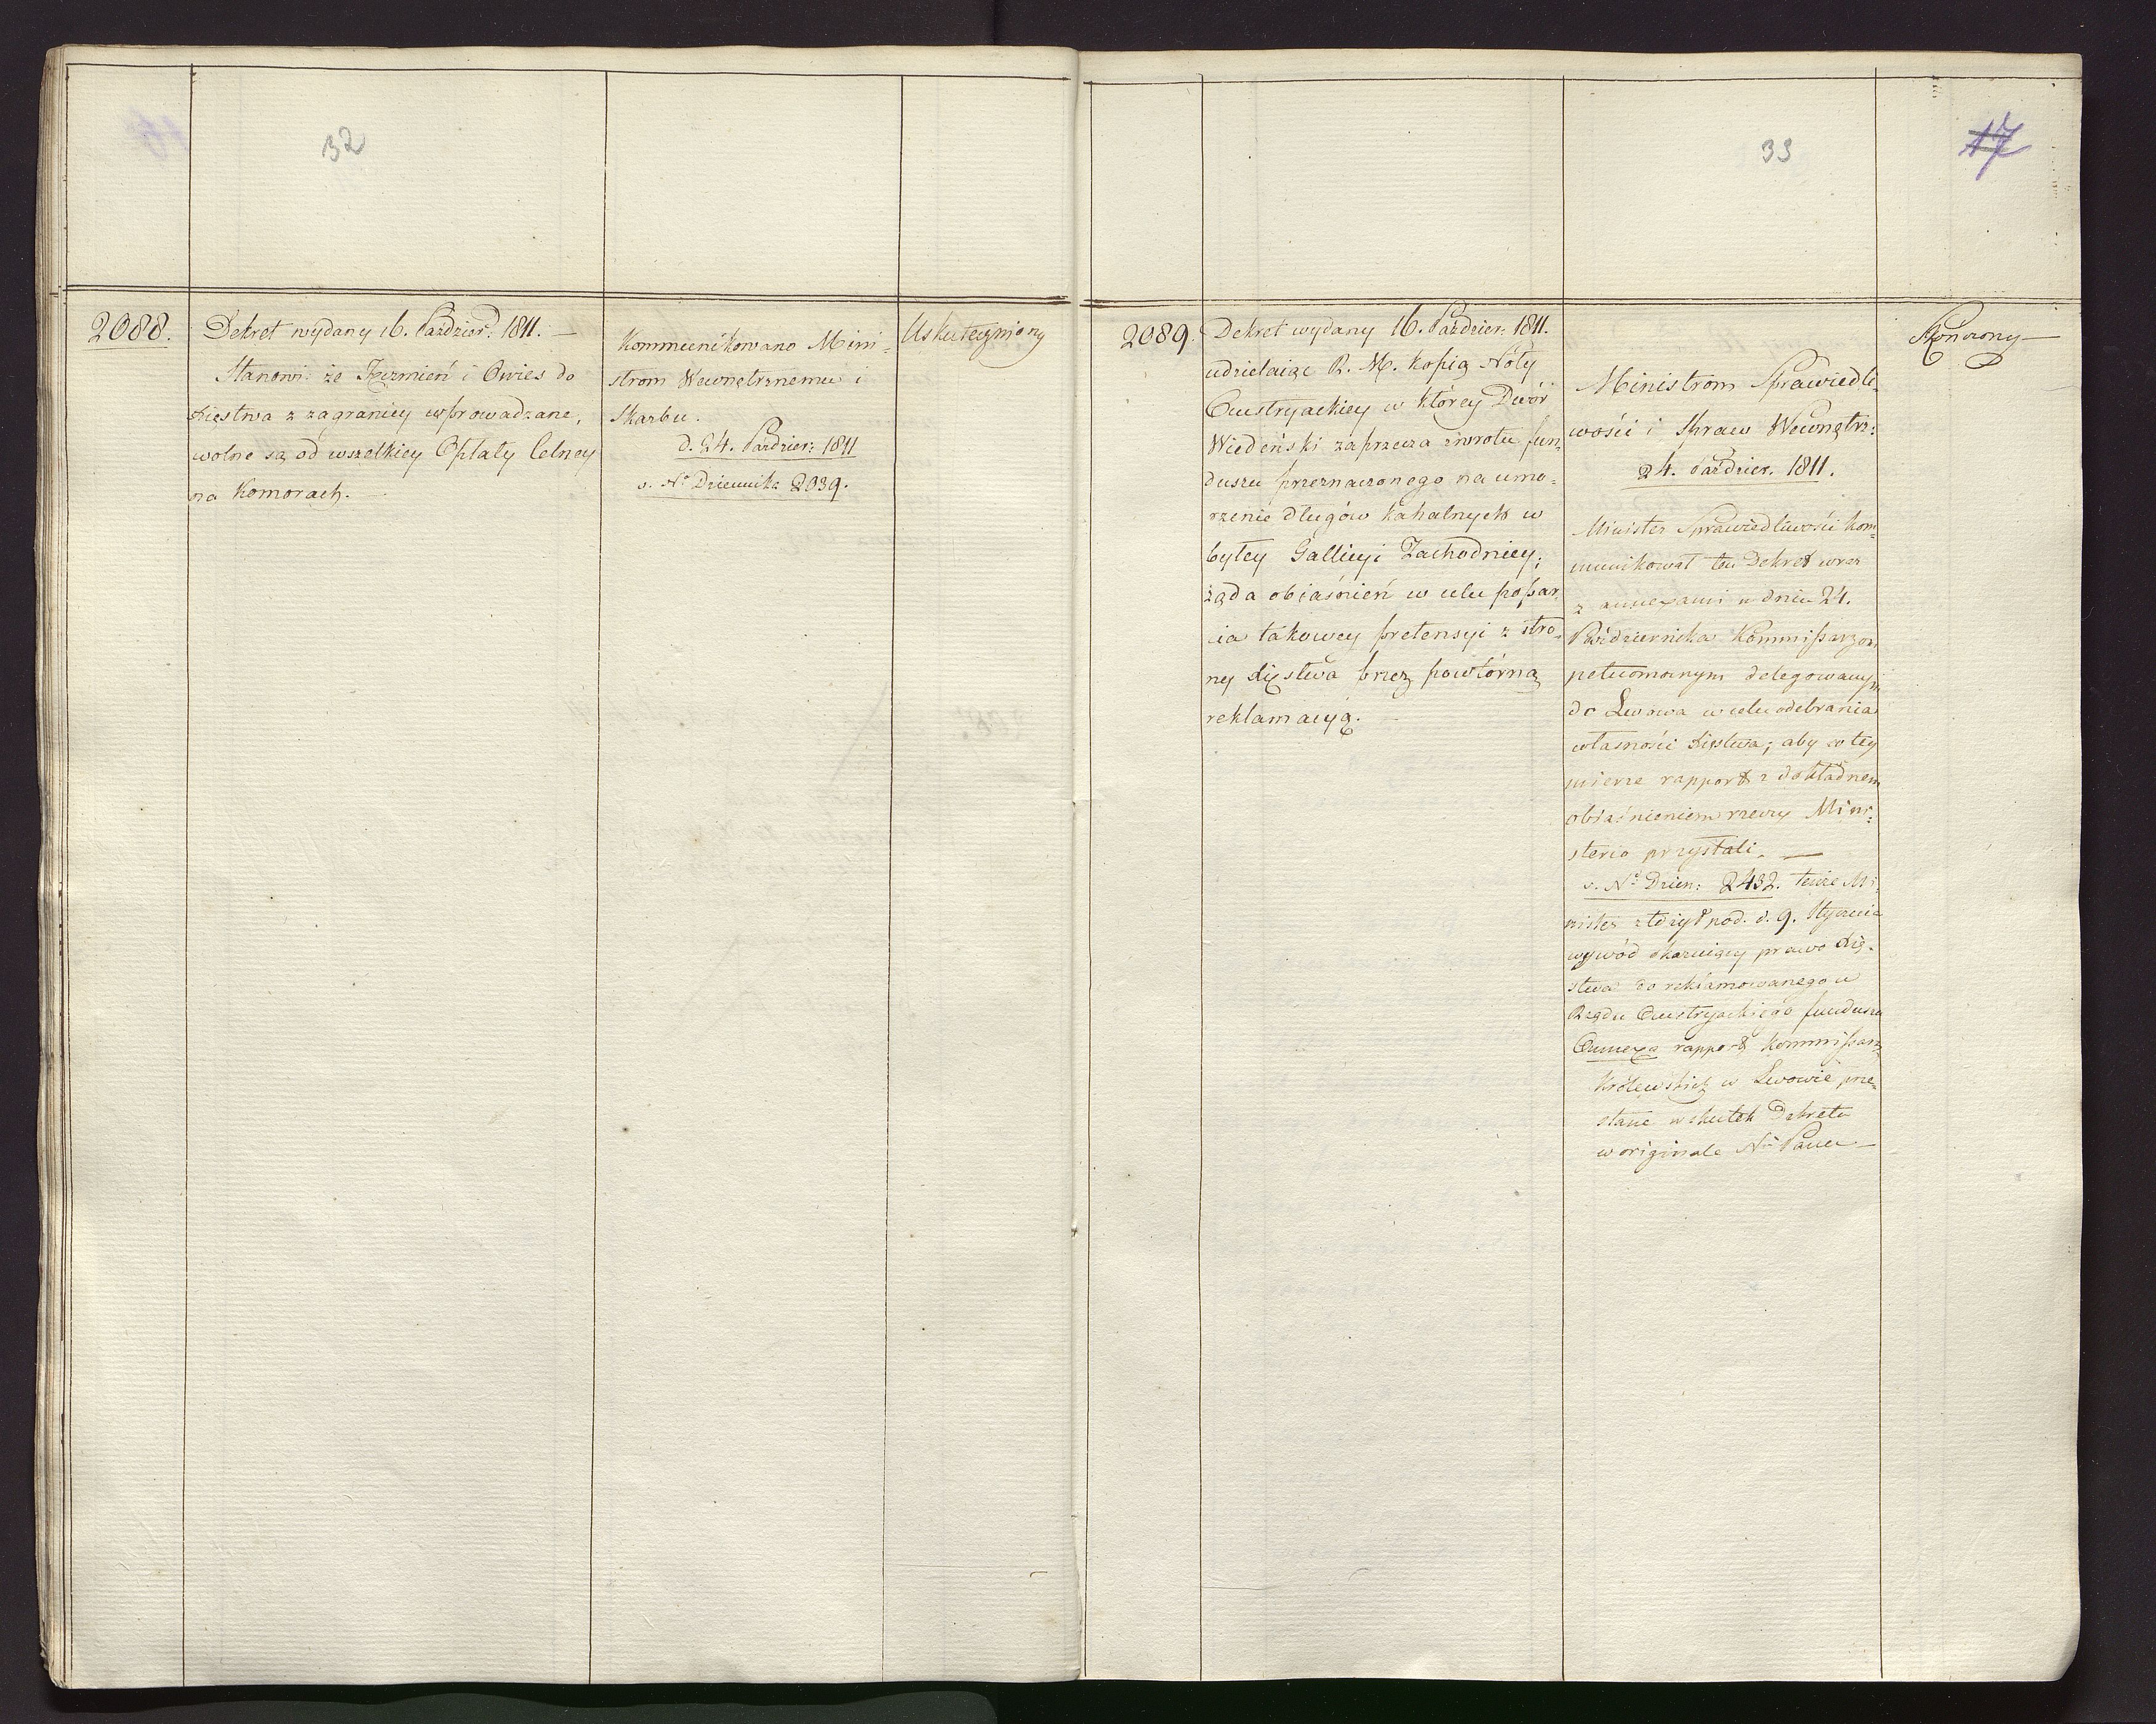 32
2088.
Dekret wydany 16. Paździer: 1811. —
Stanowi: że Jęczmień i Owies do
Xięstwa z zagranicy wprowadzane,
wolne są od wszelkiey Opłaty Celney
na Komorach.
Kommunikowano Mini-
strom Wewnętrznemu i
Skarbu.
d. 24. Paździer: 1811
v. No Dziennika 2039.
Uskuteczniony
33
17
2089.
Dekret wydany 16. Paździer: 1811.
udzielaiąc R. M. kopią Nóty
Austryackiey w którey Dwór
Wiedeński zaprzecza zwrotu fun-
duszu przeznaczonego na umo-
rzenie długów kahalnych w
byłey Gallicyi Zachodniey;
żąda obiaśnień w celu popar-
cia takowey pretensyi z stro-
ny Xięstwa przez powtórną
reklamacyą. —
Ministrom Sprawiedli-
wości i Spraw Wewnętrz:
24. Paździer. 1811.
Minister Sprawiedliwości kom-
munikował ten Dekret wraz
z annexami w dniu 24.
Października Kommissarzom
pełnomocnym delegowanym
do Lwowa w celu odebrania
własności Xięstwa; aby w tey
mierze rapport z dokładnem
obiaśnieniem rzeczy Mini-
sterio przysłali. —
v. No Dzien: 2432. tenże Mi-
nister złożył pod. d. 9. Stycznia
wywód okazuiący prawo Xię-
stwa do reklamowanego u
Rządu Austryackiego funduszu
Annexa rapport Kommissarz
Królewskich w Lwowie prze-
słane w skutek Dekretu
w originale
Skończony —